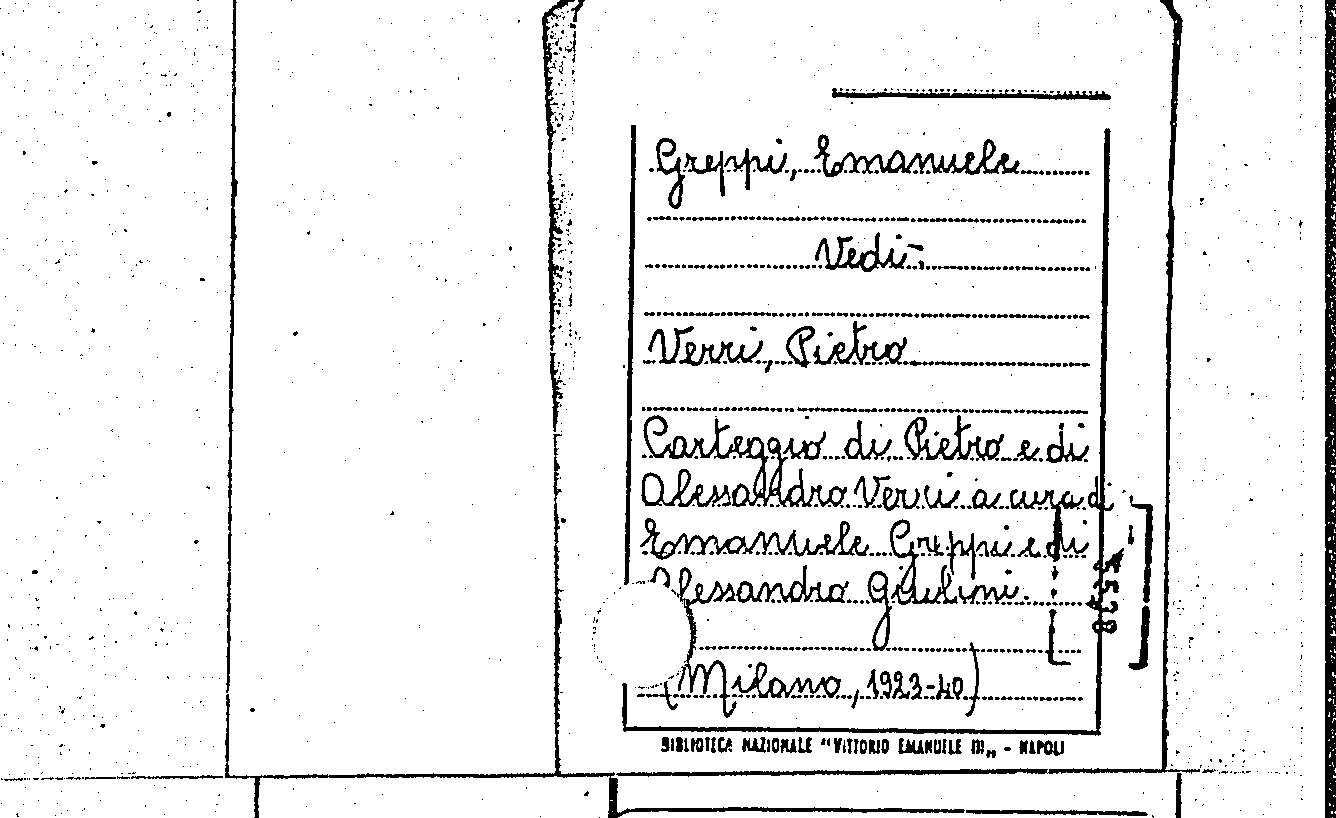 Greppi, Emanuele
Vedi:
Verri, Pietro
Carteggio di Pietro e di
Alessandro Verri a cura di
Emanuele Greppi e di
Alessandro Giulini.
(Milano, 1923-40)
BIBLIOTECA NAZIONALE "VITTORIO EMANUELE III„ - NAPOLI